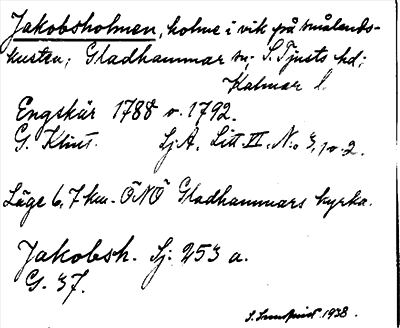 Jakobsholmen, holme i vik på smålands-
kusten; Gladhammar sn; S. Tjusts hd;
Kalmar l.
Engskär 1788 o. 1792.
G. Klint. Sj A. Litt. VI. N:o 3, 1 o 2.
Läge 6,7 km. ÖNÖ Gladhammars kyrka.
Jakobsh. Sj. 253 a.
G. 37.
1938.